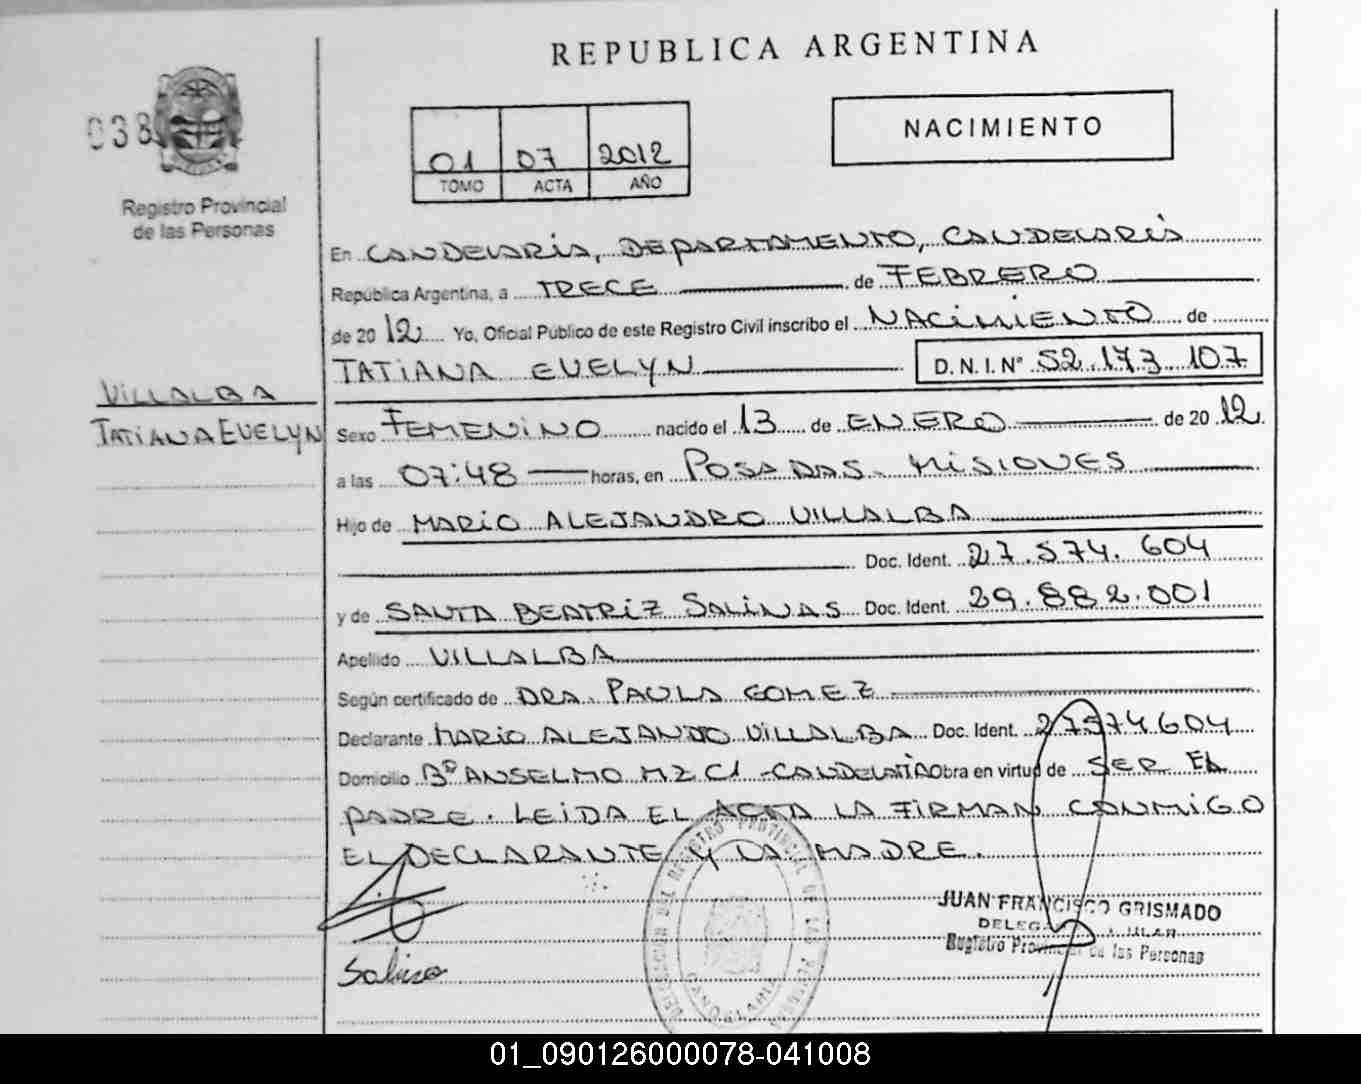 REPUBLICA ARGENTINA
038
Registro Provincial
de las Personas
01 07 2012
TOMO ACTA AÑO
NACIMIENTO
En CANDELARIA, DEPARTAMENTO, CANDELARIA
República Argentina, a TRECE de FEBRERO
de 2012 Yo, Oficial Público de este Registro Civil inscribo el NACIMIENTO de
TATIANA EVELYN D.N.I.Nº 52.173.107
VILLALBA
TATIANA EVELYN
Sexo FEMENINO nacido el 13 de ENERO de 2012.
a las 07:48 horas, en POSADAS. MISIONES
Hijo de MARIO ALEJANDRO VILLALBA
Doc. Ident. 27.574.604
y de SANTA BEATRIZ SALINAS Doc. Ident. 29.882.001
Apellido VILLALBA
Según certificado de DRA. PAULA GOMEZ
Declarante MARIO ALEJANDO VILLALBA Doc. Ident. 27574604
Domicilio Bº ANSELMO MZ C1 - CANDELARIA Obra en virtud de SER EL
PADRE. LEIDA EL ACTA LA FIRMAN CONMIGO
EL DECLARANTE Y LA MADRE.
DELEGACIÓN DEL REGISTRO PROVINCIAL DE LAS PERSONAS
CANDELARIA
JUAN FRANCISCO GRISMADO
Registro Provincial de las Personas
01_090126000078-041008